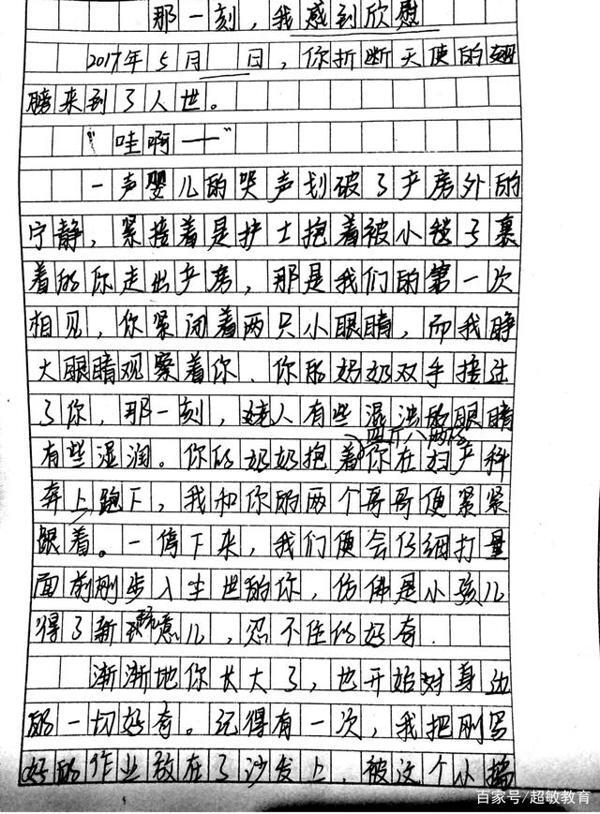 那一刻，我感到欣慰
2017年5月 日，你折断天使的翅
膀来到了人世。
“哇啊——”
一声婴儿的哭声划破了产房外的
宁静，紧接着是护士抱着被小毯子裹
着的你走出产房，那是我们的第一次
相见，你紧闭着两只小眼睛，而我睁
大眼睛观察着你、你的奶奶双手接过
了你，那一刻，老人有些混浊的眼睛
四斤八两的
有些湿润。你的奶奶抱着你在妇产科
奔上跑下，我和你的两个哥哥便紧紧
跟着。一停下来，我们便会仔细打量
面前刚步入尘世的你，仿佛是小孩儿
得了新玩意儿，忍不住的好奇.
渐渐地你长大了，也开始对身边
的一切好奇。记得有一次，我把刚写
好的作业放在了沙发上，被这个小捣
百家号/超敏教育